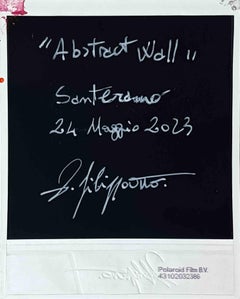 "Abstract Wall"
Santeramo
24 Maggio 2023
Polaroid Film B.V.
43102032386